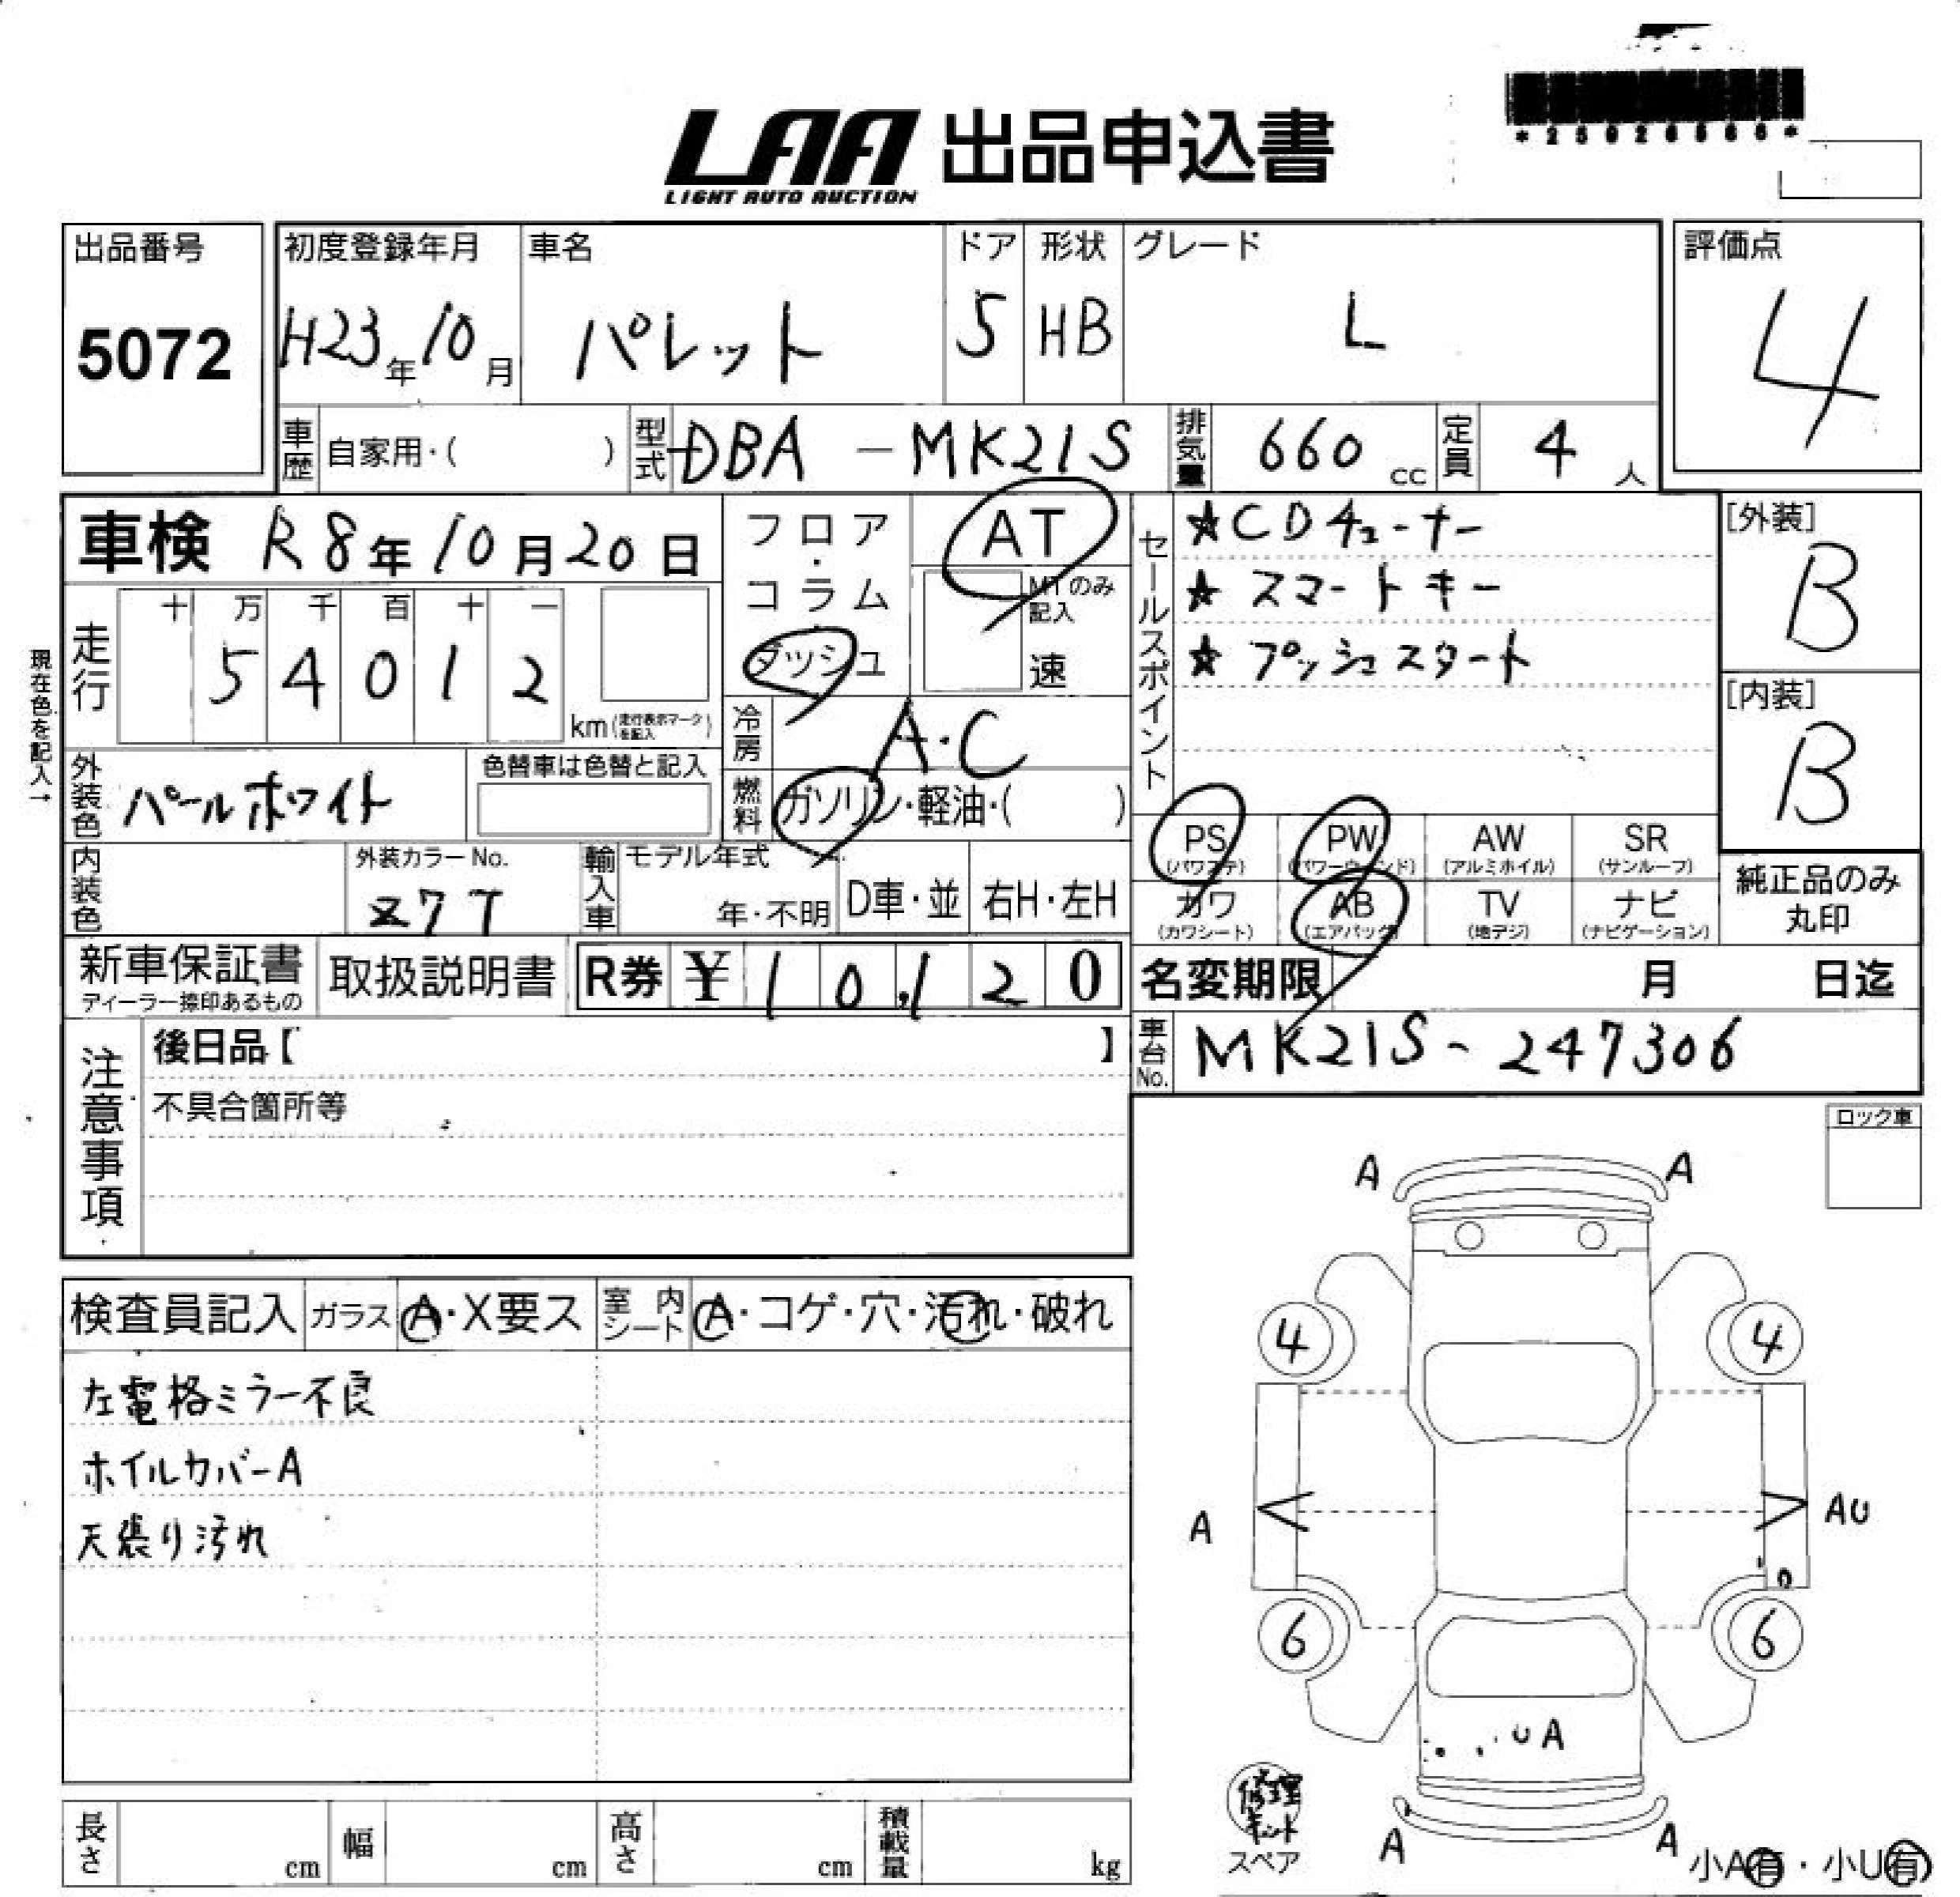 *25026566*
LAA 出品申込書
LIGHT AUTO AUCTION
出品番号 初度登録年月 車名 ドア 形状 グレード 評価点
5072 H23年10月 パレット 5 HB L 4
車歴 自家用・( ) 型式 DBA-MK21S 排気量 660cc 定員 4人
車検 R8年10月20日
フロア・コラム・ダッシュ
AT
MTのみ記入
速
セールスポイント
★CDチューナー
★スマートキー
★プッシュスタート
[外装]
B
[内装]
B
現在色を記入→
走行 十 万 千 百 十 一
54012
km(走行表示マークを記入)
冷房 A・C
外装色 パールホワイト 色替車は色替と記入
燃料 ガソリン・軽油・( )
PS(パワステ) PW(パワーウィンド) AW(アルミホイル) SR(サンルーフ)
カワ(カワシート) AB(エアバッグ) TV(地デジ) ナビ(ナビゲーション)
純正品のみ丸印
内装色 外装カラーNo. Z7T 輸入車 モデル年式 年・不明 D車・並 右H・左H
新車保証書 ディーラー捺印あるもの 取扱説明書 R券 ¥10,120 名変期限 月 日迄
注意事項
後日品【 】
不具合箇所等
車台No. MK21S-247306
ロック車
A A
4 4
A AU
U
6 6
UA
A A
検査員記入 ガラス A・X要ス 室内シート A・コゲ・穴・汚れ・破れ
左電格ミラー不良
ホイルカバーA
天張り汚れ
修理キット
スペア
小A有・小U有
長さ cm 幅 cm 高さ cm 積載量 kg